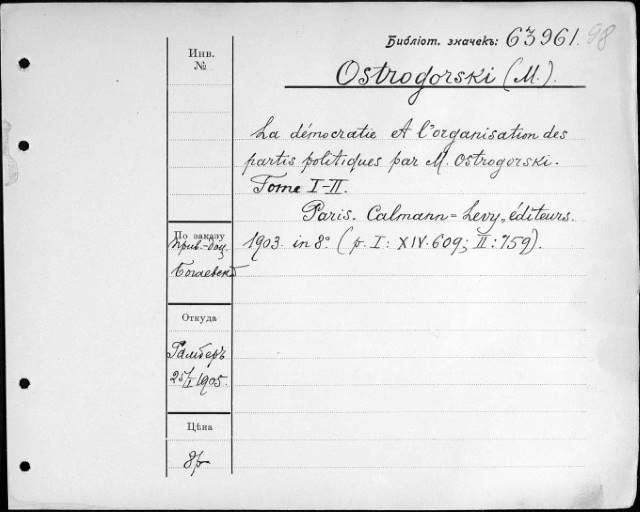 Библіот. значекъ: 63961. 98
Инв.
№
Ostrogorski (M.).
La démocratie et l'organisation des
partis politiques par M. Ostrogorski.
Tome I-II.
Paris. Calmann=Levy, éditeurs.
1903. in 8° (p. I: XIV.609; II: 759).
По заказу
Прив.-доц.
Богаевск
Откуда
25/II 1905.
Цѣна
8р